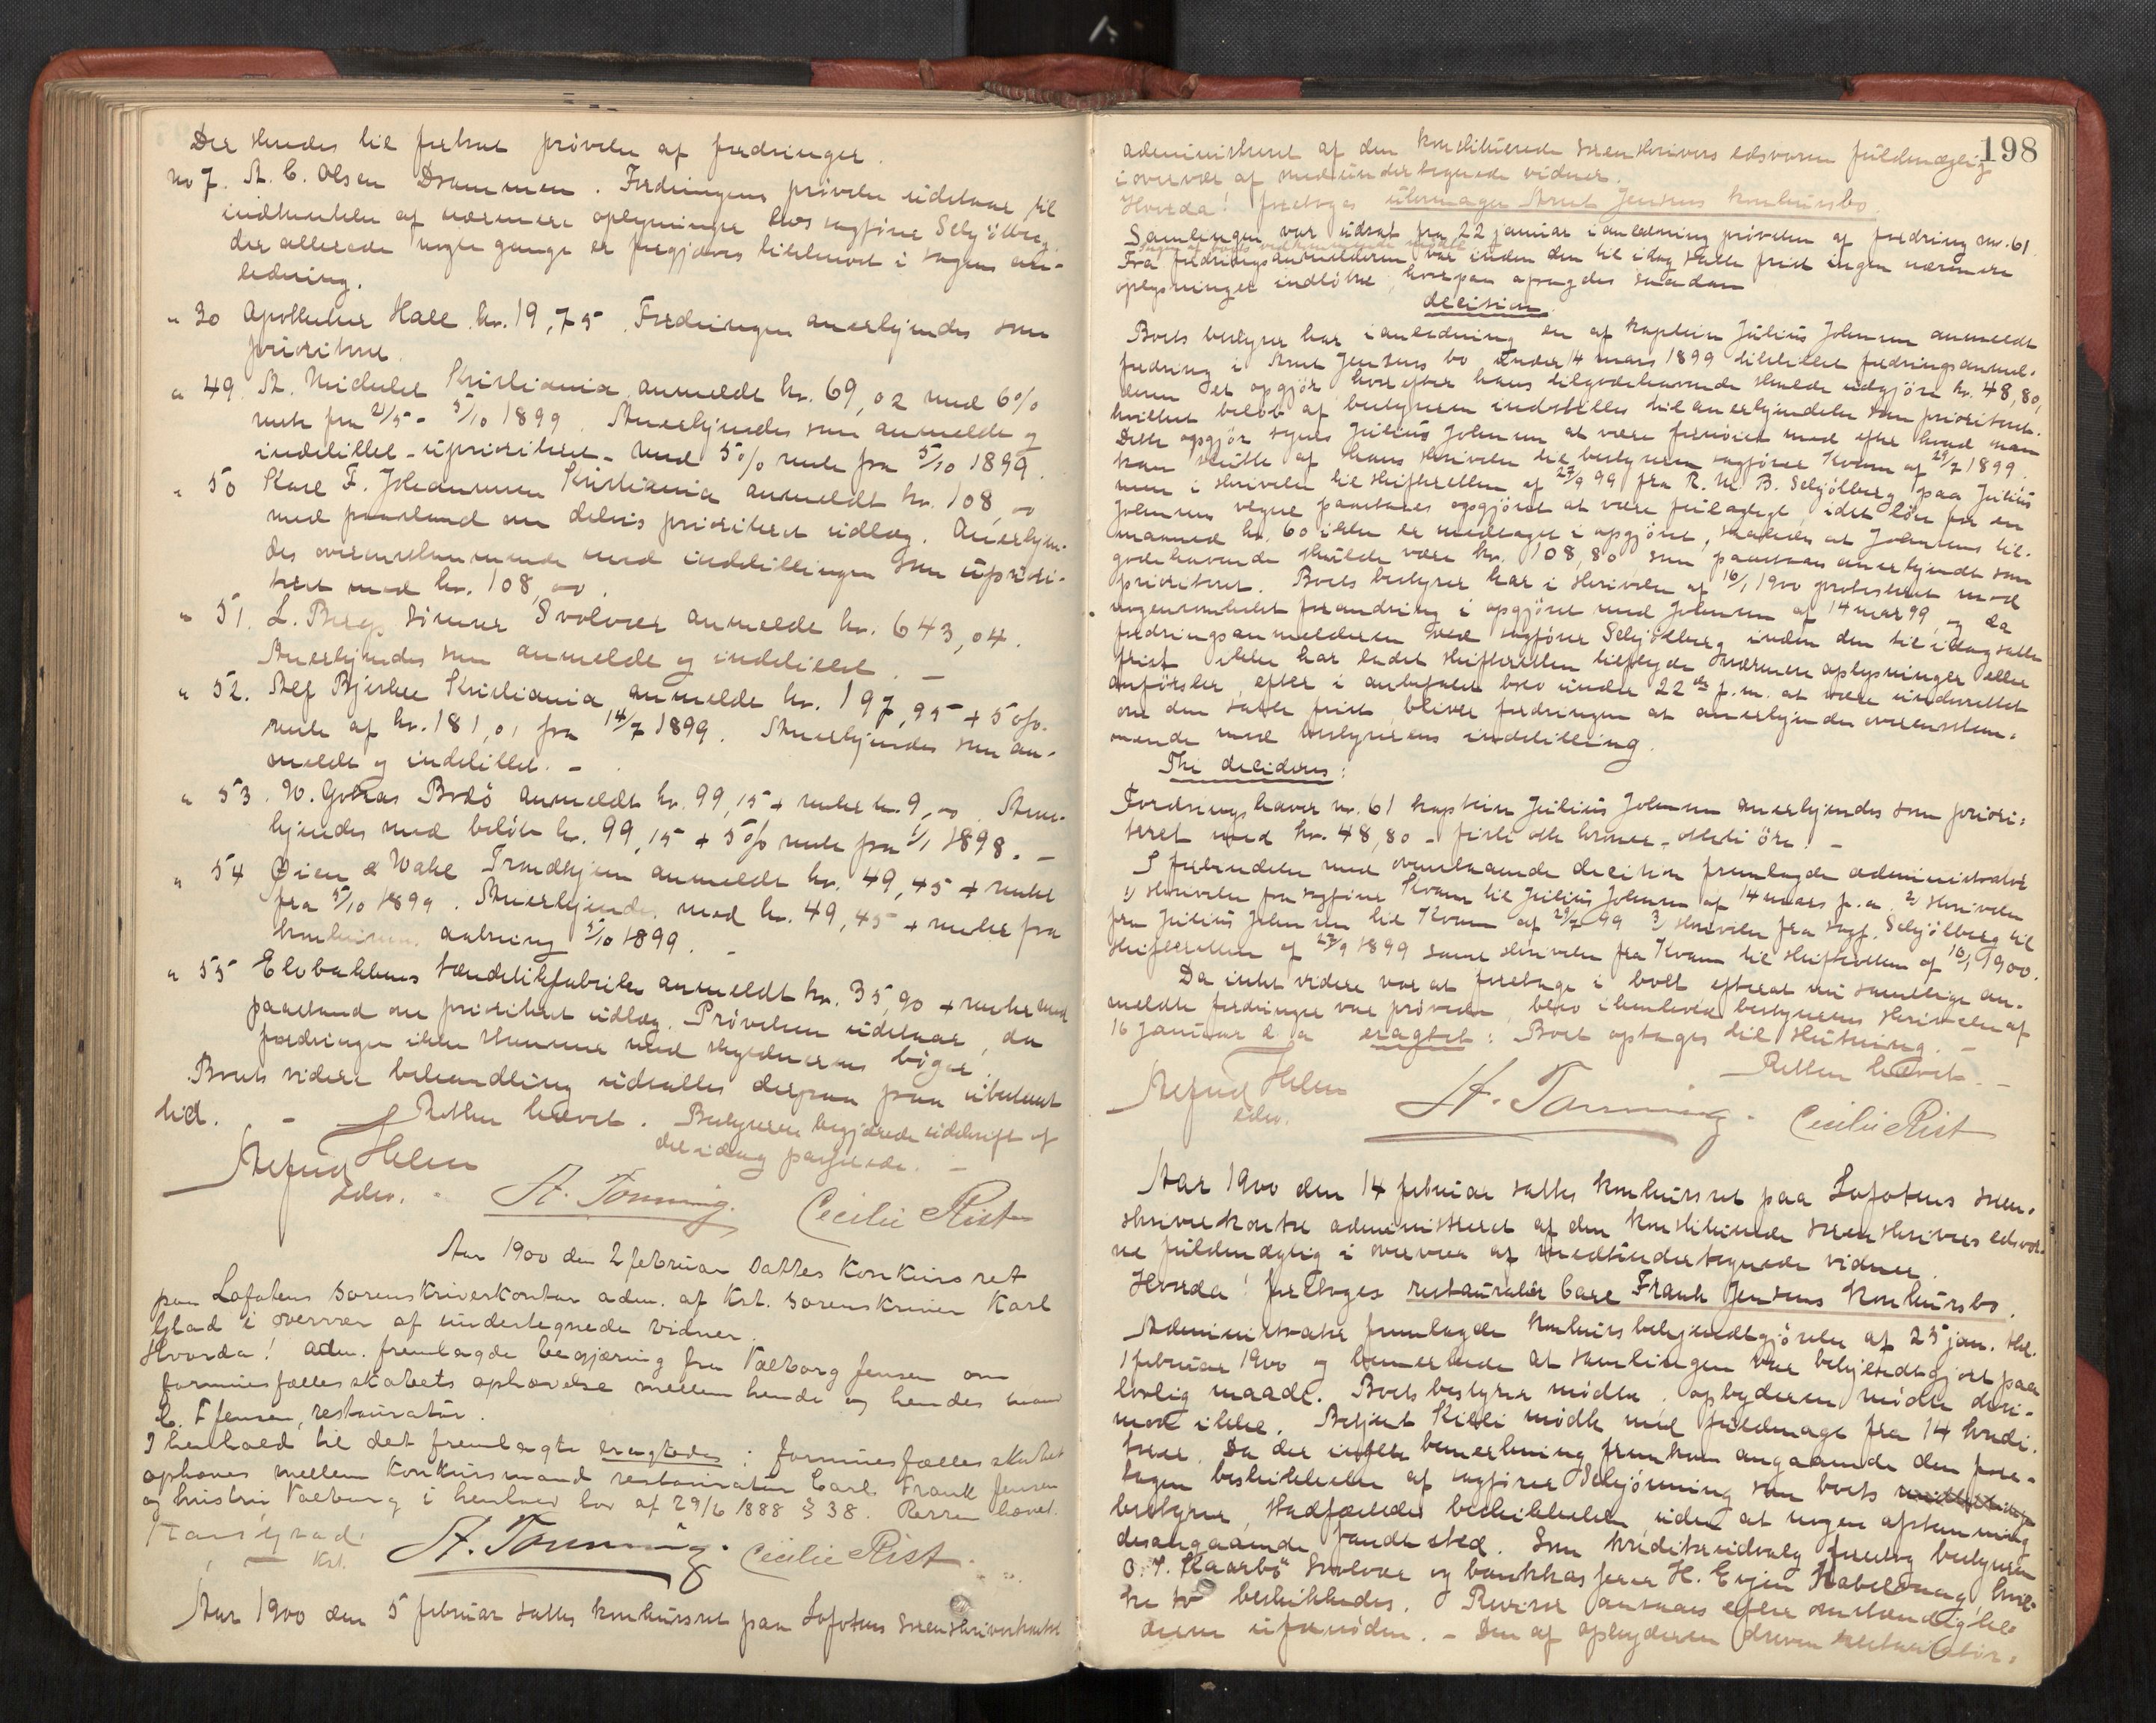 Der skredes til fortsat prøvelse af fordringer.
No 7. A. C. Olsen Drammen. Fordringens prøvelse udstaar til
indhentelse af nærmere oplysninger hos sagfører Schjölberg
der allerede nogle gange er forgjæves tilskrevet i sagens an-
ledning.
" 30 Apotheker Hall kr. 19,75. Fordringen anerkjendes som
prioriteret.
" 49. A. Michelet Kristiania anmeldt kr. 69,02 med 6%
rente fra 2/5 - 5/10 1899. Anerkjendes som anmeldt og
indstillet - uprioriteret - med 5% rente fra 5/10 1899.
" 50 Karl F. Johannesen Kristiania anmeldt kr. 108,00
med paastand om delvis prioriteret udlæg. Anerkjen-
des overensstemmende med indstillingen som upriori-
teret med kr. 108,00.
" 51. L. Bergs sönner Svolvær anmeldt kr. 643,04.
Anerkjendes som anmeldt og indstillet. -
" 52. Alf Bjercke Kristiania anmeldt kr. 197,95 + 5%
rente af kr. 181,01 fra 14/7 1899. Anerkjendes som an-
meldt og indstillet. -
" 53. W. Bodö anmeldt kr. 99,15 + renter kr. 9,00. Aner-
kjendes med beløb kr. 99,15 + 5% rente fra 1/1 1898. -
" 54 Øien & Wahl Trondhjem anmeldt kr. 49,45 + renter
fra 5/10 1899. Anerkjendes med kr. 49,45 + renter fra
konkursens aabning 5/10 1899. -
" 55 Elvebakkens tændstikfabrik anmeldt kr. 35,90 + renter med
paastand om prioriteret udlæg. Prøvelsen udstaar, da
fordringen ikke stemmer med skyldnerens bøger.
Boets videre behandling udsattes derpaa paa ubestemt
tid. - Retten hævet. Bestyreren begjærede udskrift af
det idag passerede. -
Helen
edsv. A. Tonning. Cecilie Rist
Aar 1900 den 2 februar sattes konkursret
paa Lofotens sorenskriverkontor adm. af kst. sorenskriver Karl
Glad i overvær af undertegnede vidner.
Hvorda! adm. fremlagde begjæring fra Valborg Jensen om
formuesfællesskabets ophævelse mellem hende og hendes mand
C. F Jensen, restauratør.
I henhold til det fremlagte eragtedes: formuesfællesskabet
ophæves mellem konkursmand restauratør Carl Frank Jensen
og hustru Valborg i henhold lov af 29/6 1888 § 38. Retten hævet.
Karl Glad
kst. A. Tonning. Cecilie Rist.
Aar 1900 den 5 februar sattes konkursret paa Lofotens sorenskriverkontor
198
administreret af den konstituerede sorenskrivers edsvorne fuldmægtig
i overvær af medundertegnede vidner.
Hvorda! foretoges uhrmager Arnt Jensens konkursbo.
Samlingen var udsat fra 22 januar i anledning prøvelsen af fordring no. 61.
Fra fordringsanmelderen var inden den til idag satte frist ingen nærmere
oplysninger indløbne, hvorpaa afsagdes saadan
decision.
Boets bestyrer har i anledning en af kaptein Julius Johnsen anmeldt
fordring i Arnt Jensens bo under 14 mars 1899 tilstillet fordringsanmel-
deren et opgjör hvorefter hans tilgodehavende skulde udgjöre kr. 48,80,
hvilket beløb af bestyreren indstilles til anerkjendelse som prioriteret.
Dette opgjör synes Julius Johnsen at være fornöiet med efter hvad man
kan slutte af hans skrivelse til bestyreren sagfører Kvam af 29/7 1899.
men i skrivelse til skifteretten af 27/9 99 fra R. M. B. Schjölberg paa Julius
Johnsens vegne paastaaes opgjöret at være feilagtigt, idet lön for en
maaned kr. 60 ikke er medtaget i opgjöret, saaledes at Johnsens til-
godehavende skulde være kr. 108,80 som paastaaes anerkjendt som
prioriteret. Boets bestyrer har i skrivelse af 16/1 1900 protesteret mod
nogensomhelst forandring i opgjöret med Johnsen af 14 mars 99, og da
fordringsanmelderen ved sagfører Schjölberg inden den til idag satte
frist ikke har ladet skifteretten tilflyde nærmere oplysninger eller
anførsler, efter i anbefalet brev under 22de f. m. at være underrettet
om den satte frist, bliver fordringen at anerkjende overensstem-
mende med bestyrerens indstilling.
Thi decideres:
Fordringshaver no. 61 kaptein Julius Johnsen anerkjendes som priori-
teret med kr. 48,80 - firti otte kroner - otteti öre. -
I forbindelse med ovenstaaende decision fremlagde administrator
1) skrivelse fra sagfører Kvam til Julius Johnsen af 14 mars f. a. 2) skrivelse
fra Julius Johnsen til Kvam af 29/7 99 3) skrivelse fra sagf. Schjölberg til
skifteretten af 27/9 1899 samt skrivelse fra Kvam til skifteretten af 16/1 1900.
Da intet videre var at foretage i boet efterat nu samtlige an-
meldte fordringer var prøvede, blev i henhold bestyrerens skrivelse af
16 januar d. a eragtet: Boet optages til slutning. -
Retten hævet. -
Helen
edsv. A. Tonning. Cecilie Rist
Aar 1900 den 14 februar sattes konkursret paa Lofotens soren-
skriverkontor administreret af den konstituerede sorenskrivers edsvor-
ne fuldmægtig i overvær af medundertegnede vidner.
Hvorda! foretoges restauratör Carl Frank Jensens konkursbo.
Administrator fremlagde konkursbekjendtgjörelse af 25 jan. Hbl.
1 februar 1900 og bemerkede at samlingen var bekjendtgjort paa
lovlig maade. Boets bestyrer mødte, opbyderen mødte deri-
mod ikke. Betjent Kiil mødte med fuldmagt fra 14 kredi-
torer. Da der ingen bemerkning fremkom angaaende den fore-
tagne beskikkelse af sagfører Schjønning som boets
bestyrer, stadfæstedes beskikkelsen, uden at nogen afstemning
desangaaende fandt sted. Som kreditorudvalg foreslog bestyreren
O. J. Kaarbø Svolvær og bankkasserer H. Erjen Kabelvaag, hvil-
ke to beskikkedes. Revisor ansaaes efter omstændighe-
derne ufornøden. - Den af opbyderen drevne restauratör-